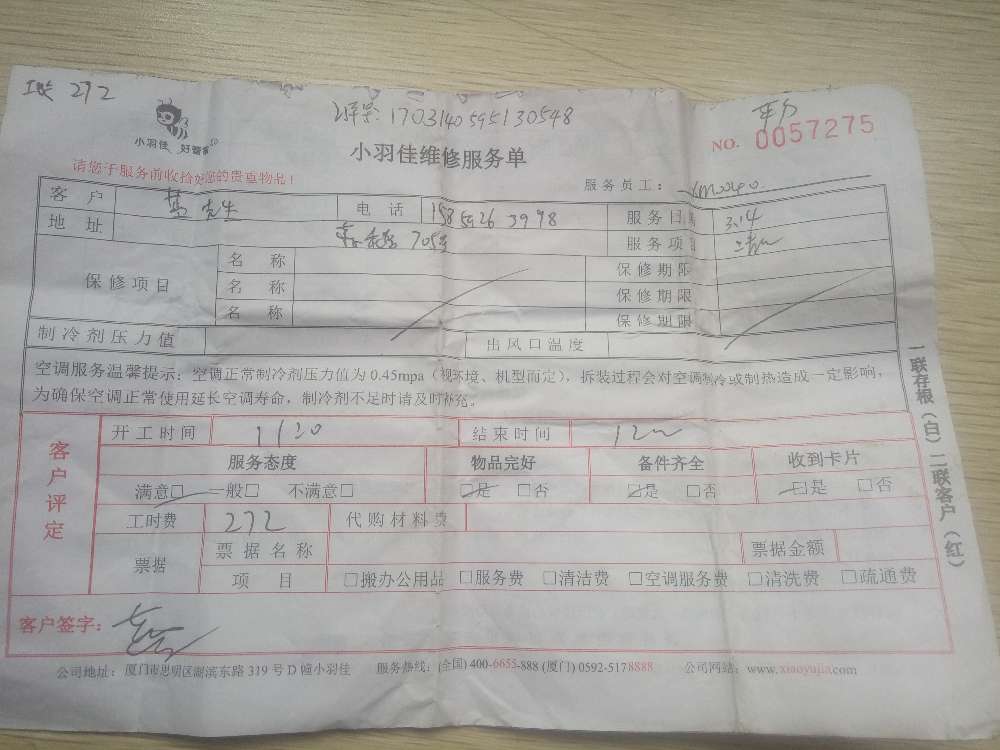 272
单号: 1703140595130548
小羽佳 好管家
小羽佳维修服务单
NO. 0057275
请您于服务前收拾好您的贵重物品！
服务员工：
客户 先生 电话 服务日期 3.14
地址 705 服务项目
保修项目 名称 保修期限
名称 保修期限
名称 保修期限
制冷剂压力值 出风口温度
空调服务温馨提示：空调正常制冷剂压力值为 0.45mpa（视环境、机型而定），拆装过程会对空调制冷或制热造成一定影响，
为确保空调正常使用延长空调寿命，制冷剂不足时请及时补充。
客户评定
开工时间 1130 结束时间 1200
服务态度 物品完好 备件齐全 收到卡片
满意□ 一般□ 不满意□ □是 □否 □是 □否 □是 □否
工时费 272 代购材料费
票据 票据名称 票据金额
项目 □搬办公用品 □服务费 □清洁费 □空调服务费 □清洗费 □疏通费
客户签字：
公司地址：厦门市思明区湖滨东路 319 号 D 幢小羽佳 服务热线：(全国) 400-6655-888 (厦门) 0592-5178888 公司网站：www.xiaoyujia.com
一联存根（白）二联客户（红）